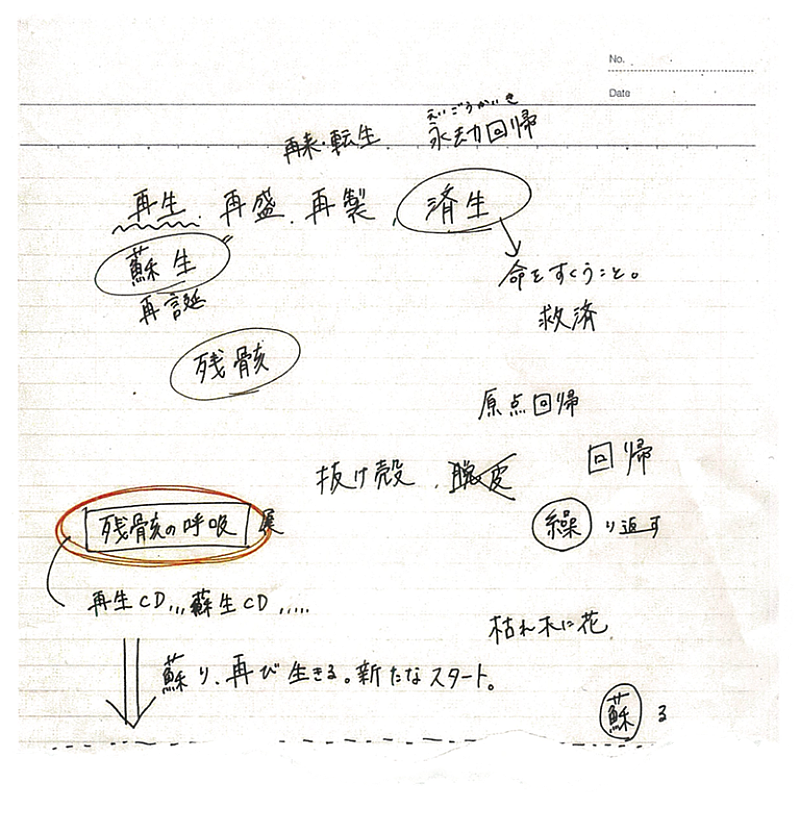 No.
Date
えいごうかいき
再来・転生 永劫回帰
再生、再盛、再製、済生
蘇生
命をすくうこと。
再誕
救済
残骸
原点回帰
回帰
抜け殻、脱皮
残骸の呼吸 展
繰り返す
再生CD...蘇生CD.....
枯れ木に花
蘇り、再び生きる。新たなスタート。
蘇る